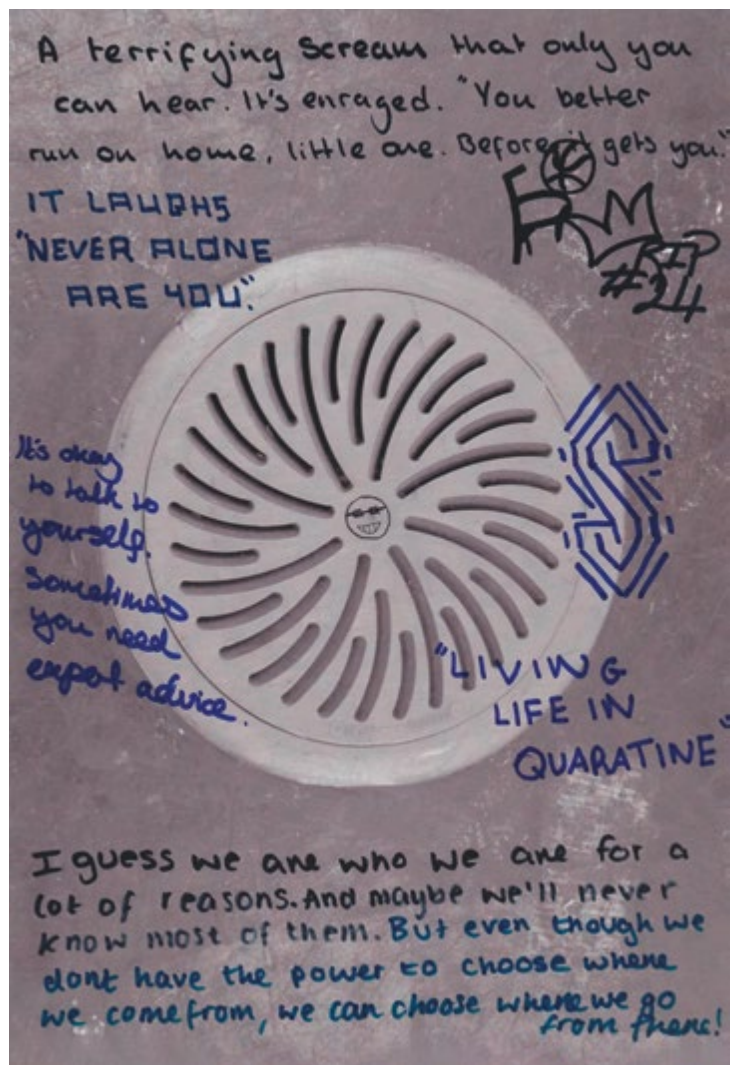 A terrifying scream that only you
can hear. It's enraged. "You better
run on home, little one. Before it gets you."
IT LAUGHS
"NEVER ALONE
ARE YOU."
RIP
#24
It's okay
to talk to
yourself.
Sometimes
you need
expert advice.
S
"LIVING
LIFE IN
QUARATINE"
I guess we are who we are for a
lot of reasons. And maybe we'll never
know most of them. But even though we
dont have the power to choose where
we come from, we can choose where we go
from there!